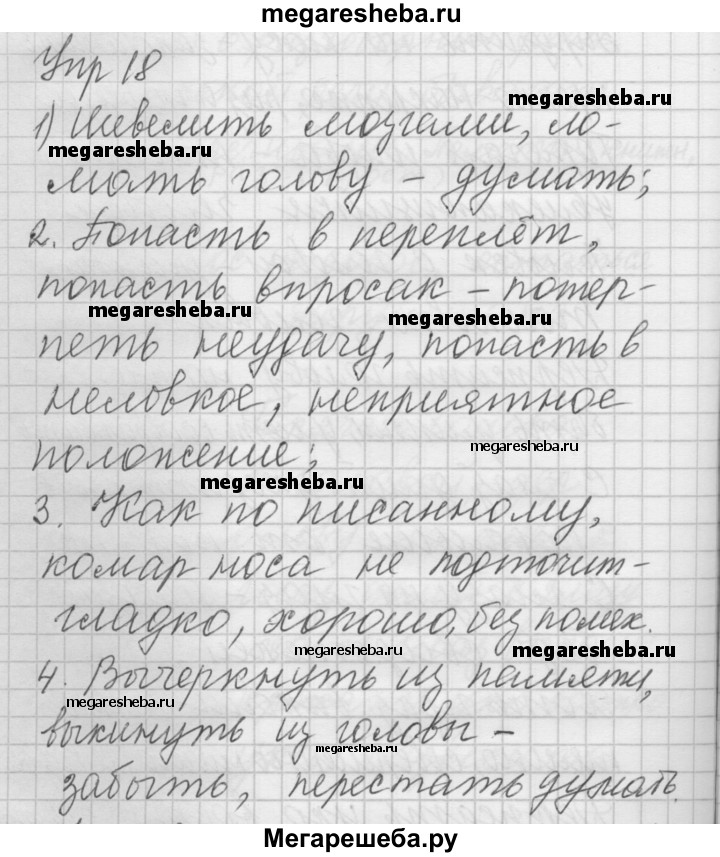 megaresheba.ru
Упр 18
megaresheba.ru
1) Шевелить мозгами, ло-
megaresheba.ru
мать голову – думать;
2. Попасть в переплёт,
попасть впросак – потер-
megaresheba.ru
megaresheba.ru
петь неудачу, попасть в
неловкое, неприятное
megaresheba.ru
положение;
megaresheba.ru
3. Как по писанному,
комар носа не подточит –
гладко, хорошо, без помех.
megaresheba.ru
megaresheba.ru
4. Вычеркнуть из памяти,
megaresheba.ru
выкинуть из головы –
megaresheba.ru
забыть, перестать думать.
Мегарешеба.ру